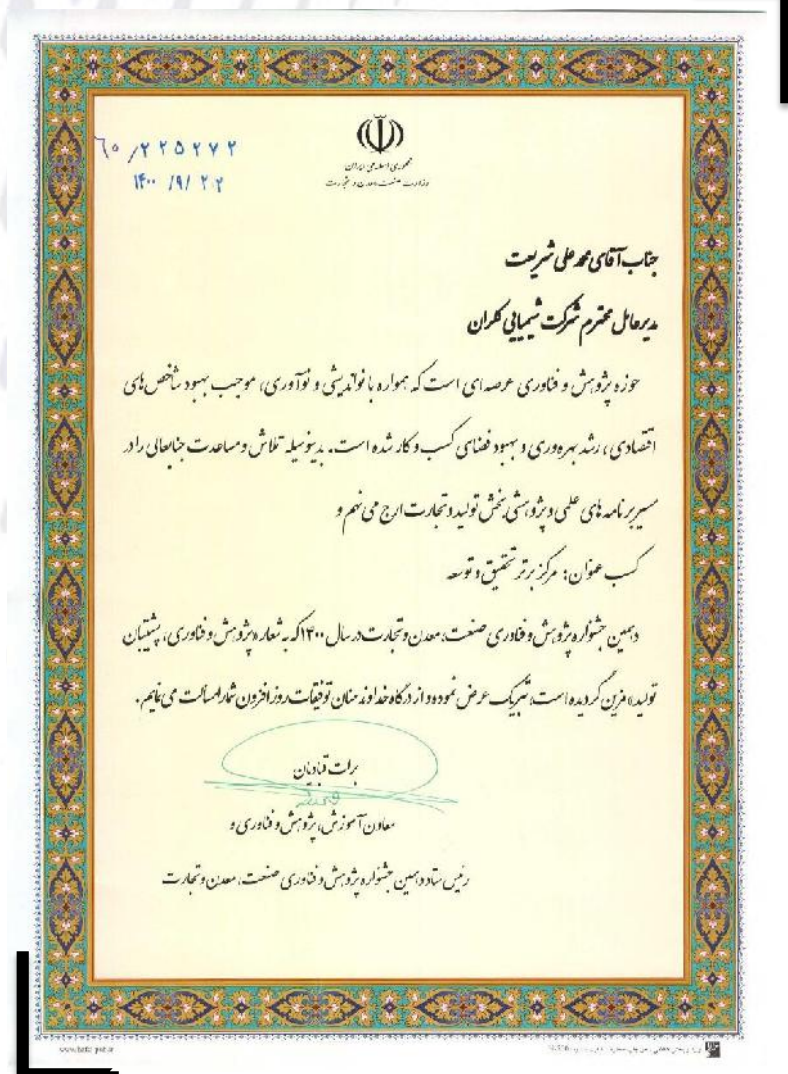 ۶۰/۲۲۵۲۷۲
۱۴۰۰/۹/۲۰۲
جمهوری اسلامی ایران
وزارت صنعت، معدن و تجارت
جناب آقای محمد علی شریعت
مدیرعامل محترم شرکت شیمیایی کلران
حوزه پژوهش و فناوری عرصه ای است که همواره با نواندیشی و نوآوری، موجب بهبود شاخص های
اقتصادی، رشد بهره وری و بهبود فضای کسب و کار شده است. بدینوسیله تلاش و مساعدت جنابعالی را در
مسیر برنامه های علمی و پژوهشی بخش تولید و تجارت ارج می نهم و
کسب عنوان: مرکز برتر تحقیق و توسعه
دهمین جشنواره پژوهش و فناوری صنعت، معدن و تجارت در سال ۱۴۰۰ که به شعار «پژوهش و فناوری، پشتیبان
تولید» مزین گردیده است، تبریک عرض نموده و از درگاه خداوند منان توفیقات روز افزون شما را مسألت می نمایم.
برات قبادیان
معاون آموزش، پژوهش و فناوری و
رئیس ستاد دهمین جشنواره پژوهش و فناوری صنعت، معدن و تجارت